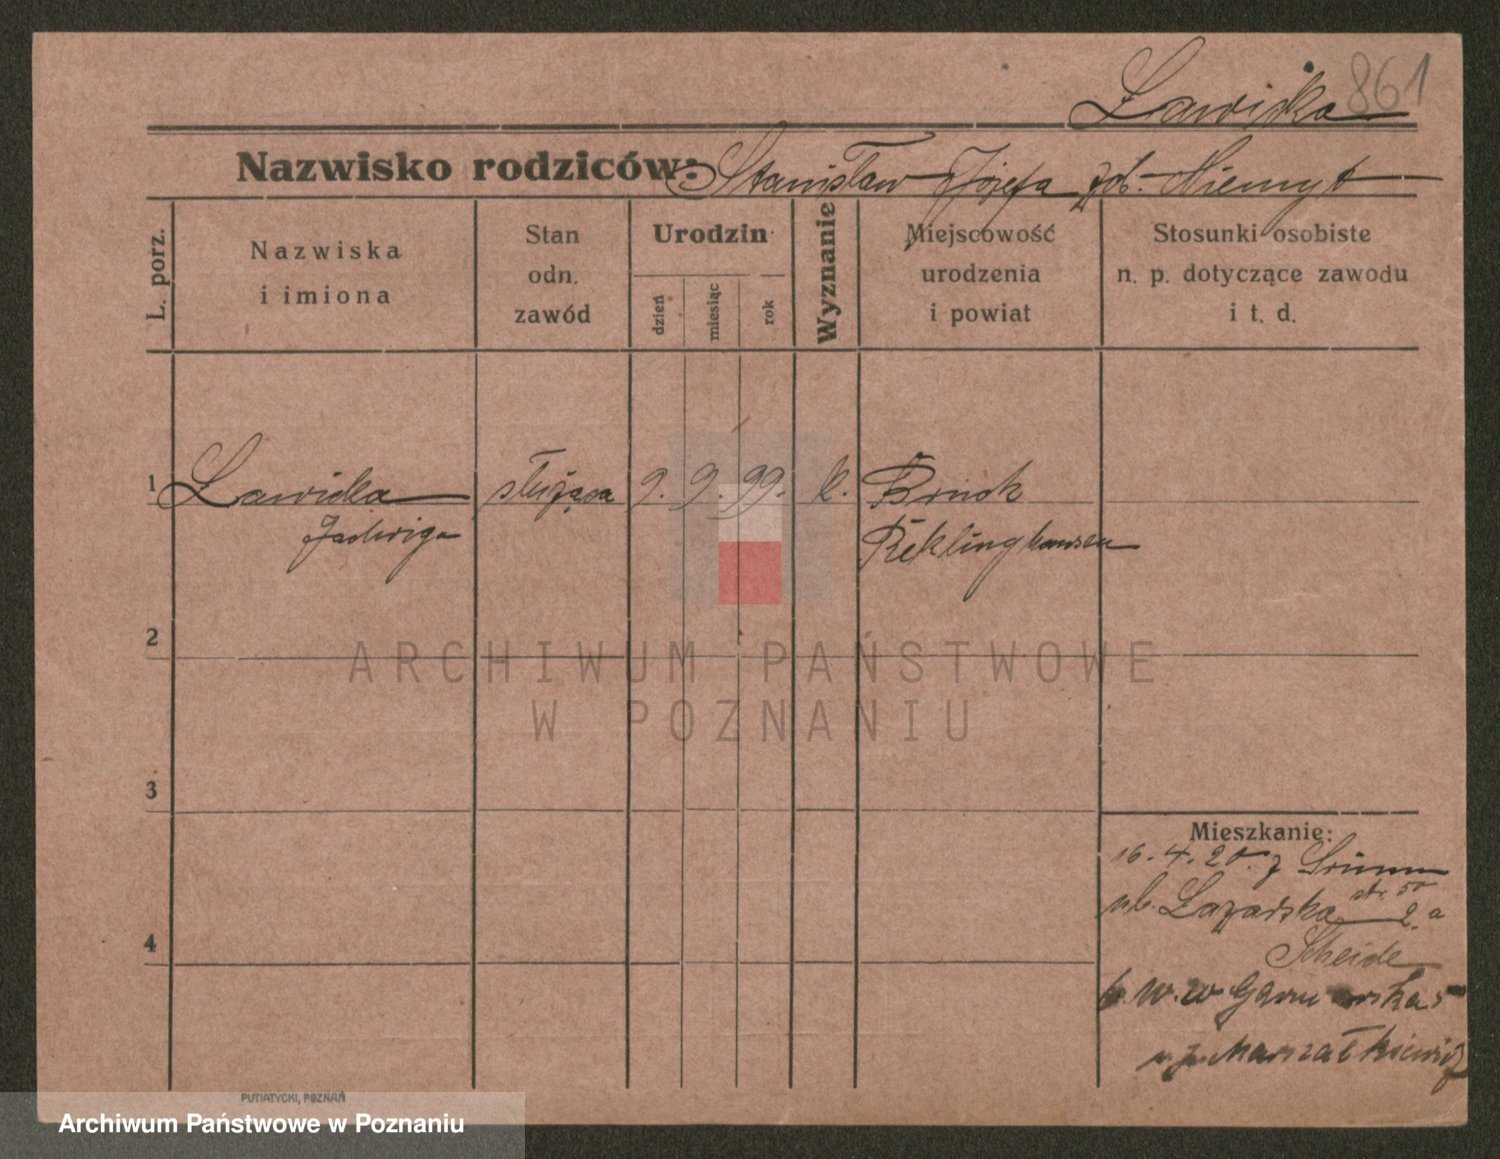 861
Ławicka
Nazwisko rodziców: Stanisław Józefa zob. Niemyt
L. porz.
Nazwiska
i imiona
Stan
odn.
zawód
Urodzin
dzień
miesiąc
rok
Wyznanie
Miejscowość
urodzenia
i powiat
Stosunki osobiste
n. p. dotyczące zawodu
i t. d.
1 Ławicka służąca 9. 9. 99. k. Bruck
Jadwiga Reklinghausen
2
3
4
Mieszkanie:
16. 4. 20. z Śrimm
ul. Łazarska str. 50
2 a
Scheide
PUTIATYCKI, POZNAŃ
ARCHIWUM PAŃSTWOWE
W POZNANIU
Archiwum Państwowe w Poznaniu